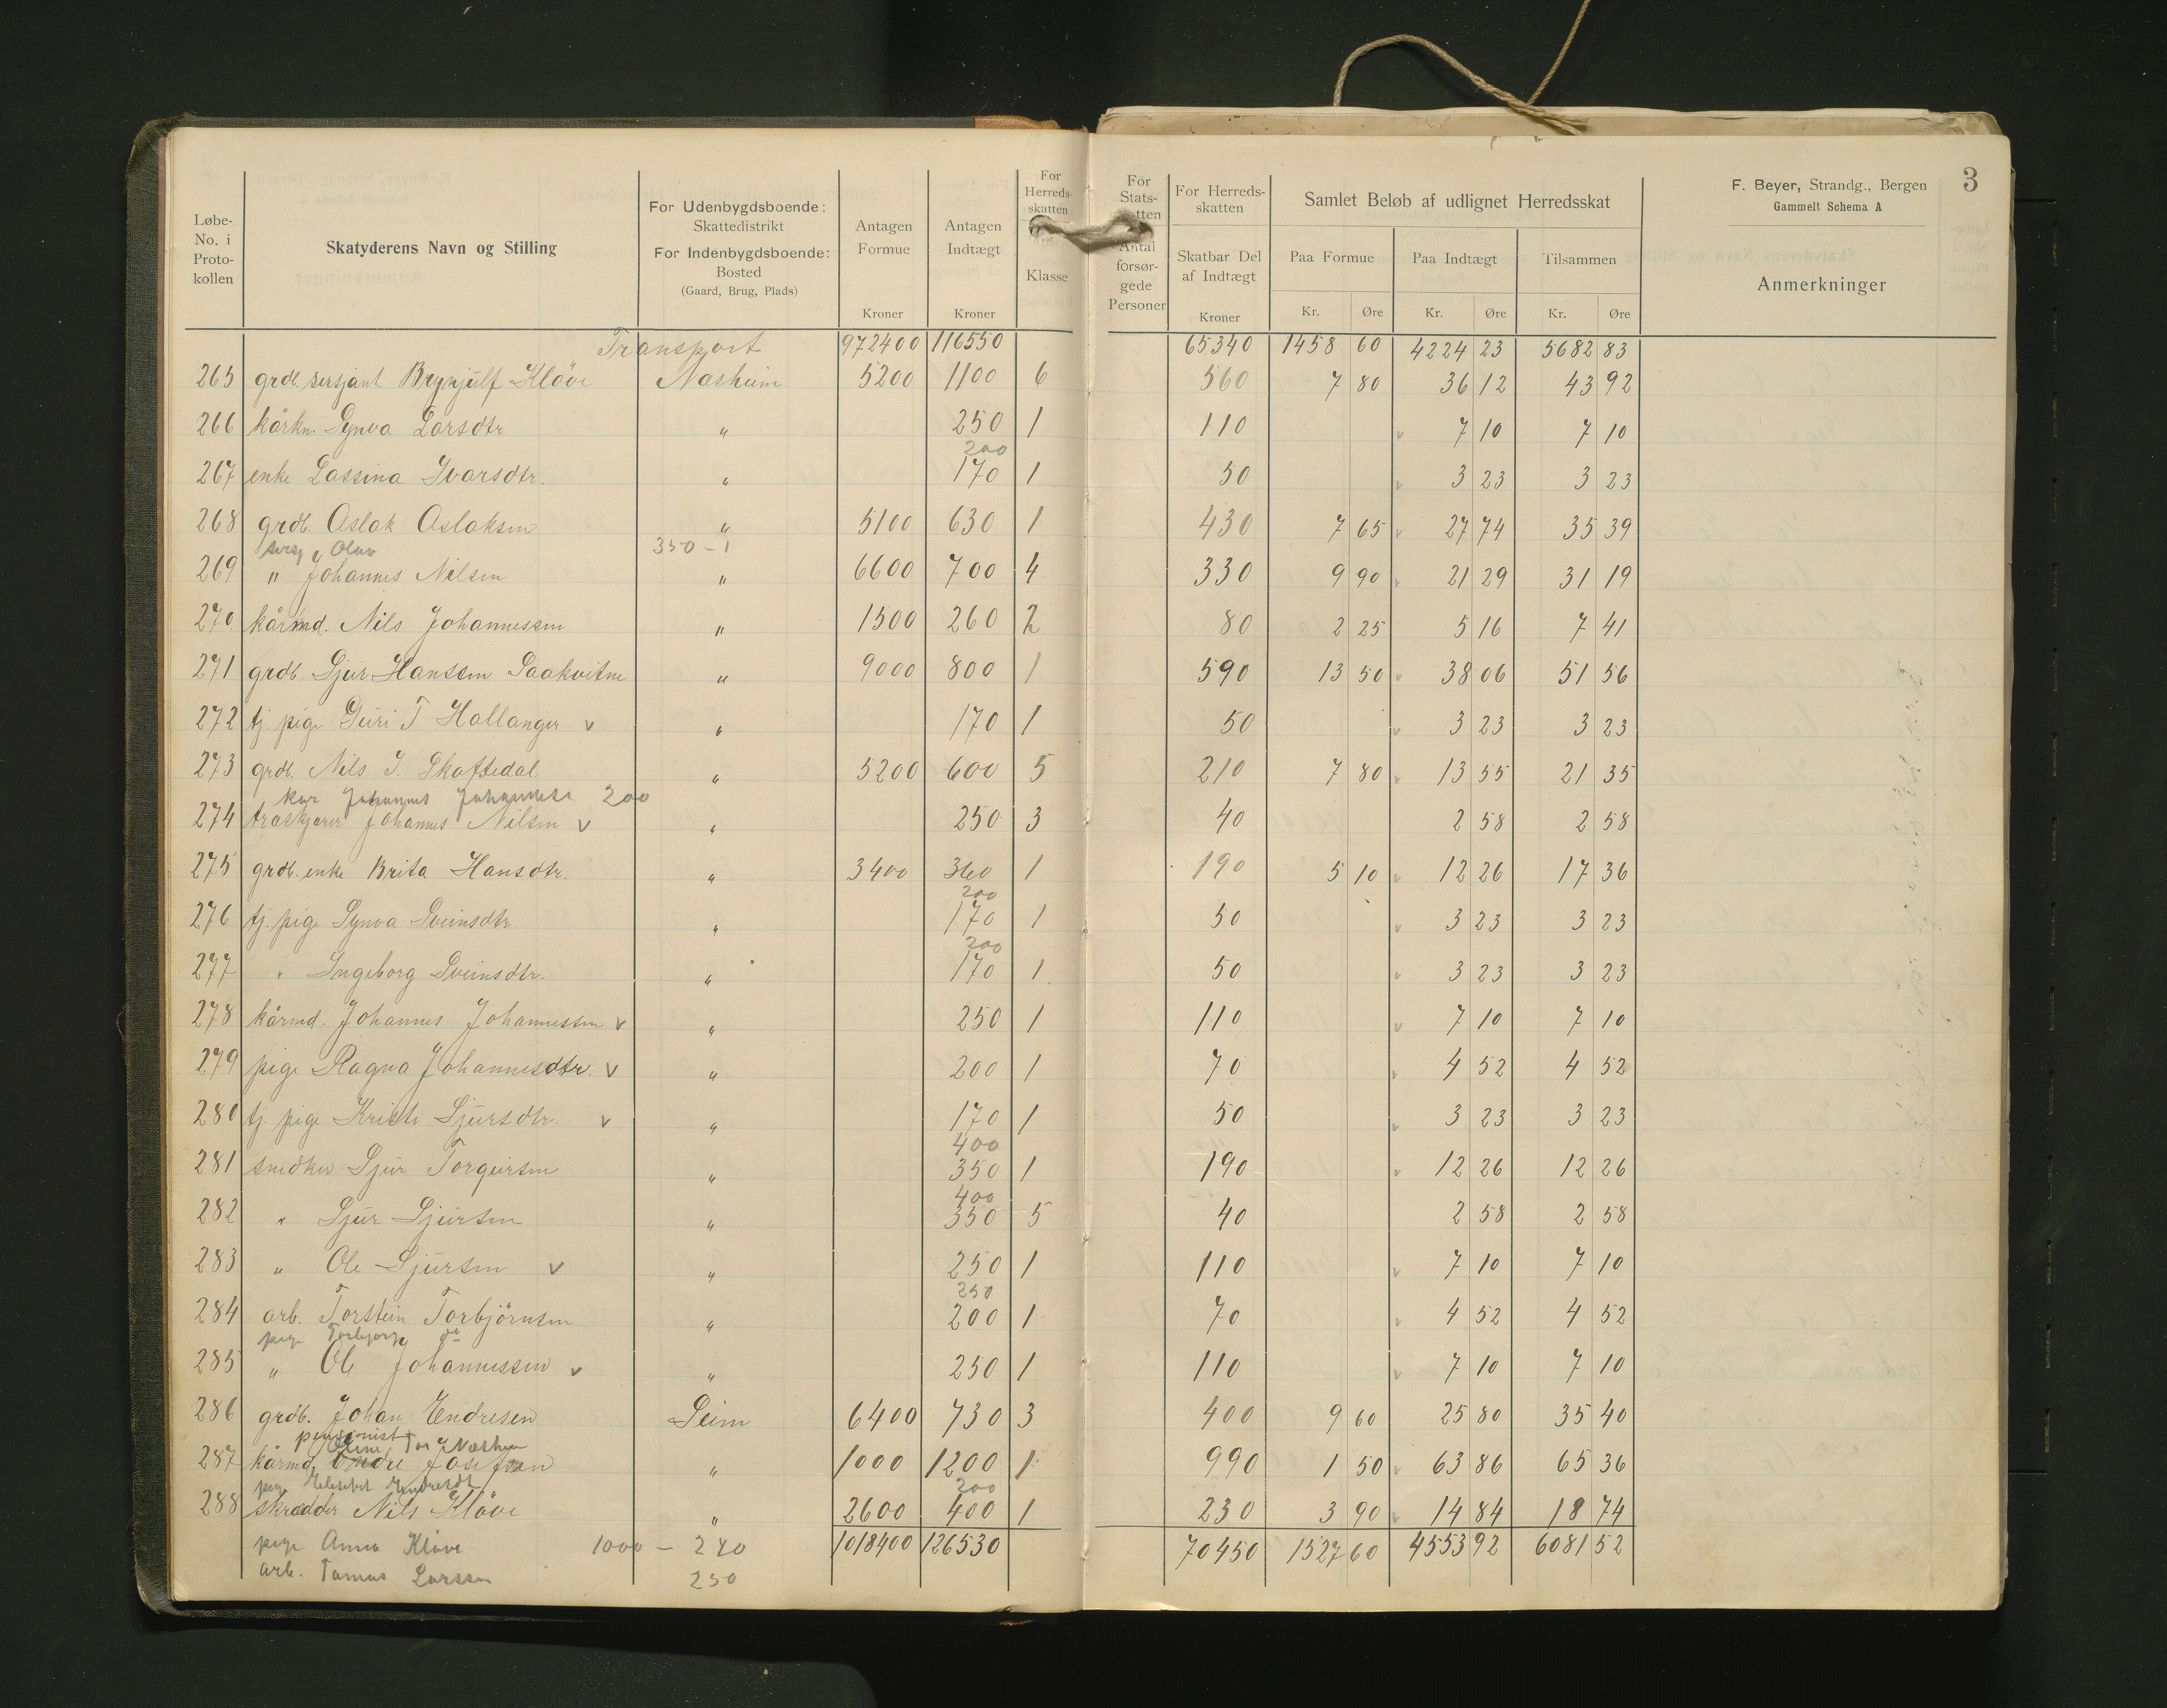 Løbe-No. i Proto-kollen | Skatyderens Navn og Stilling | For Udenbygdsboende: Skattedistrikt For Indenbygdsboende: Bosted (Gaard, Brug, Plads) | Antagen Formue Kroner | Antagen Indtægt Kroner | For Herreds-skatten Klasse | For Stats- Antal forsør-gede Personer | For Herreds-skatten Skatbar Del af Indtægt Kroner | Samlet Beløb af udlignet Herredsskat Paa Formue Kr. Øre | Paa Indtægt Kr. Øre | Tilsammen Kr. Øre | F. Beyer, Strandg., Bergen Gammelt Schema A Anmerkninger | 3
Transport 972400 116550 65340 1458 60 4224 23 5682 83
265 grdb. sersjant Brynjulf Klöve Næsheim 5200 1100 6 560 7 80 36 12 43 92
266 kårkn. Synva Larsdtr " 250 1 110 7 10 7 10
200
267 enke Lassina Ivarsdtr. " 170 1 50 3 23 3 23
268 grdb. Aslak Aslaksen " 5100 630 1 430 7 65 27 74 35 39
Olav 350 - 1
269 " Johannes Nilsen " 6600 700 4 330 9 90 21 29 31 19
270 kårmd. Nils Johannessen " 1500 260 2 80 2 25 5 16 7 41
271 grdb. Sjur Hanssen Saakvitne " 9000 800 1 590 13 50 38 06 51 56
272 tj. pige Guri T Hallanger v " 170 1 50 3 23 3 23
273 grdb. Nils I. Skaftedal " 5200 600 5 210 7 80 13 55 21 35
kar Johannes Johannessen 200
274 træskjærer Johannes Nilsen v " 250 3 40 2 58 2 58
275 grdb. enke Brita Hansdtr. " 3400 360 1 190 5 10 12 26 17 36
200
276 tj. pige Synva Sveinsdtr. " 170 1 50 3 23 3 23
200
277 " Ingeborg Sveinsdtr. " 170 1 50 3 23 3 23
278 kårmd. Johannes Johannessen v " 250 1 110 7 10 7 10
279 pige Ragna Johannesdtr. v " 200 1 70 4 52 4 52
280 tj. pige Kristi Sjursdtr. v " 170 1 50 3 23 3 23
400
281 snedker Sjur Torgeirsen " 350 1 190 12 26 12 26
400
282 " Sjur Sjursen " 350 5 40 2 58 2 58
283 " Ole Sjursen v " 250 1 110 7 10 7 10
250
284 arb. Torstein Torbjörnsen " 200 1 70 4 52 4 52
pige Torbjørg do
285 " Ole Johannessen v " 250 1 110 7 10 7 10
286 grdb. Johan Endresen Seim 6400 730 3 400 9 60 25 80 35 40
pensionist Næsheim
287 kårmd. Endre Josefsen " 1000 1200 1 990 1 50 63 86 65 36
pige Endresdt 200
288 skrædder Nils Klöve " 2600 400 1 230 3 90 14 84 18 74
1018400 126530 70450 1527 60 4553 92 6081 52
pige Anna Klöve 1000 - 240
arb. Tomas Larssen 250